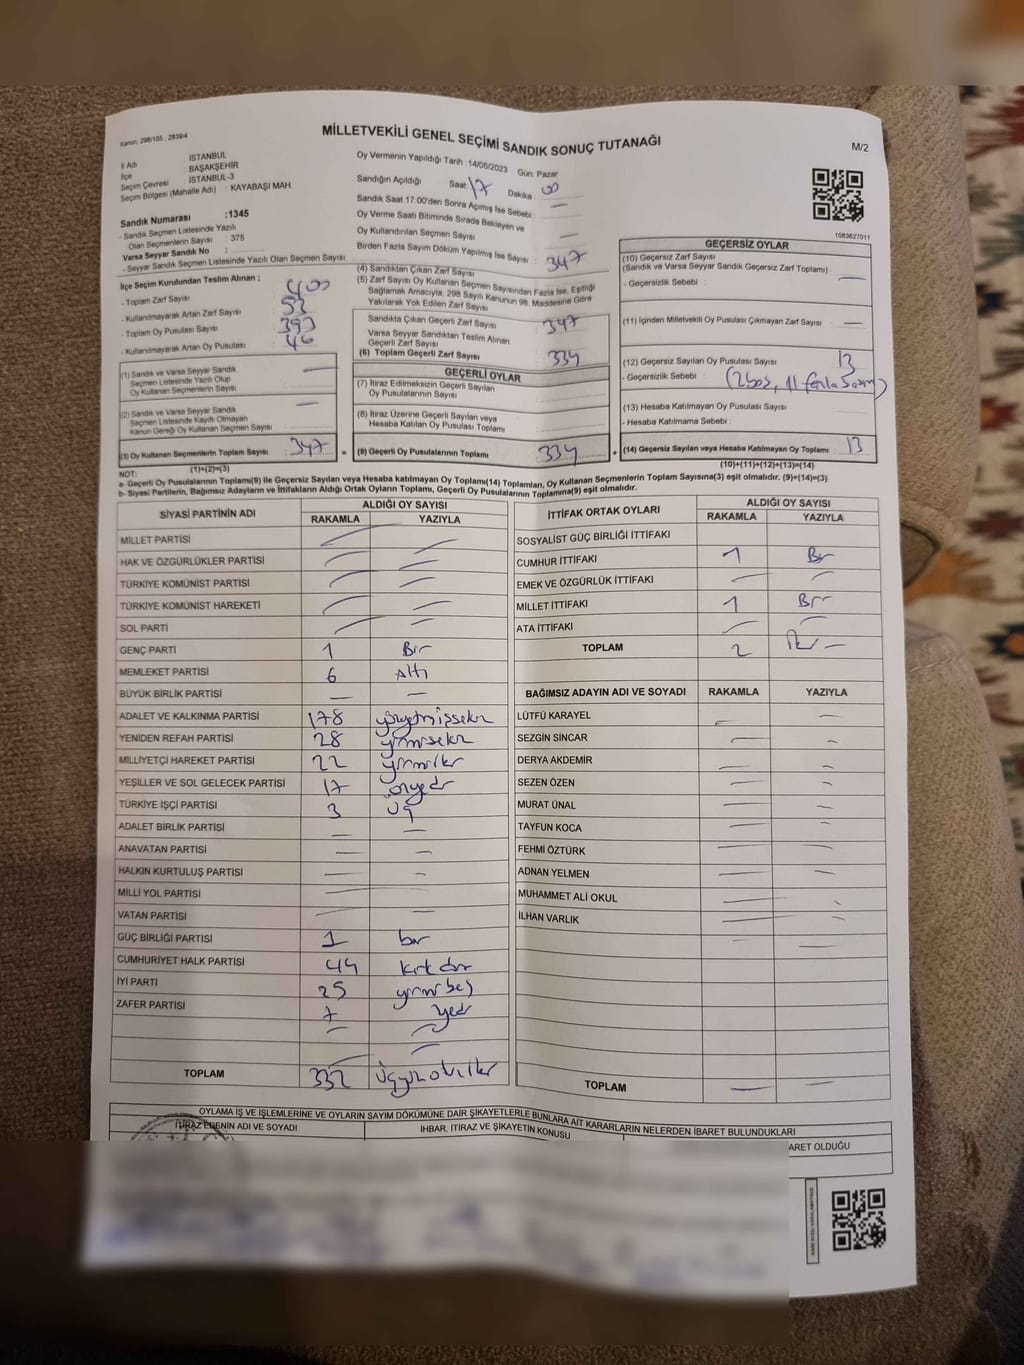 Kanun: 298/105 , 2839/4
MİLLETVEKİLİ GENEL SEÇİMİ SANDIK SONUÇ TUTANAĞI
M/2
İl Adı : İSTANBUL
İlçe BAŞAKŞEHİR
Seçim Çevresi İSTANBUL-3
Seçim Bölgesi (Mahalle Adı) : KAYABAŞI MAH.
Sandık Numarası :1345
- Sandık Seçmen Listesinde Yazılı
Olan Seçmenlerin Sayısı : 375
Varsa Seyyar Sandık No :
- Seyyar Sandık Seçmen Listesinde Yazılı Olan Seçmen Sayısı
Oy Vermenin Yapıldığı Tarih :14/05/2023 Gün: Pazar
Sandığın Açıldığı Saat 17 Dakika 00
Sandık Saat 17:00'den Sonra Açılmış İse Sebebi : —
Oy Verme Saati Bitiminde Sırada Bekleyen ve
Oy Kullandırılan Seçmen Sayısı —
Birden Fazla Sayım Döküm Yapılmış İse Sayısı :
1083627011
İlçe Seçim Kurulundan Teslim Alınan ;
- Toplam Zarf Sayısı 400
- Kullanılmayarak Artan Zarf Sayısı 53
- Toplam Oy Pusulası Sayısı 393
- Kullanılmayarak Artan Oy Pusulası 46
(1) Sandık ve Varsa Seyyar Sandık
Seçmen Listesinde Yazılı Olup
Oy Kullanan Seçmenlerin Sayısı —
(2) Sandık ve Varsa Seyyar Sandık
Seçmen Listesinde Kayıtlı Olmayan
Kanun Gereği Oy Kullanan Seçmen Sayısı —
(3) Oy Kullanan Seçmenlerin Toplam Sayısı 347
(1)+(2)=(3)
(4) Sandıktan Çıkan Zarf Sayısı 347
(5) Zarf Sayısı Oy Kullanan Seçmen Sayısından Fazla İse, Eşitliği
Sağlamak Amacıyla, 298 Sayılı Kanunun 98. Maddesine Göre
Yakılarak Yok Edilen Zarf Sayısı
Sandıkta Çıkan Geçerli Zarf Sayısı 347
Varsa Seyyar Sandıktan Teslim Alınan
Geçerli Zarf Sayısı
(6) Toplam Geçerli Zarf Sayısı 334
GEÇERLİ OYLAR
(7) İtiraz Edilmeksizin Geçerli Sayılan
Oy Pusulalarının Sayısı
(8) İtiraz Üzerine Geçerli Sayılan veya
Hesaba Katılan Oy Pusulası Toplamı
= (9) Geçerli Oy Pusulalarının Toplamı 334
GEÇERSİZ OYLAR
(10) Geçersiz Zarf Sayısı
(Sandık ve Varsa Seyyar Sandık Geçersiz Zarf Toplamı) : —
- Geçersizlik Sebebi :
(11) İçinden Milletvekili Oy Pusulası Çıkmayan Zarf Sayısı : —
(12) Geçersiz Sayılan Oy Pusulası Sayısı 13
- Geçersizlik Sebebi : (2 boş, 11 fazla basım)
(13) Hesaba Katılmayan Oy Pusulası Sayısı
- Hesaba Katmama Sebebi :
+ (14) Geçersiz Sayılan veya Hesaba Katılmayan Oy Toplamı : 13
(10)+(11)+(12)+(13)=(14)
NOT:
a- Geçerli Oy Pusulalarının Toplamı(9) ile Geçersiz Sayılan veya Hesaba katılmayan Oy Toplamı(14) Toplamları, Oy Kullanan Seçmenlerin Toplam Sayısına(3) eşit olmalıdır. (9)+(14)=(3)
b- Siyasi Partilerin, Bağımsız Adayların ve İttifakların Aldığı Ortak Oyların Toplamı, Geçerli Oy Pusulalarının Toplamına(9) eşit olmalıdır.
SİYASİ PARTİNİN ADI ALDIĞI OY SAYISI
RAKAMLA YAZIYLA
MİLLET PARTİSİ — —
HAK VE ÖZGÜRLÜKLER PARTİSİ — —
TÜRKİYE KOMÜNİST PARTİSİ — —
TÜRKİYE KOMÜNİST HAREKETİ — —
SOL PARTİ — —
GENÇ PARTİ 1 Bir
MEMLEKET PARTİSİ 6 Altı
BÜYÜK BİRLİK PARTİSİ — —
ADALET VE KALKINMA PARTİSİ 178 yüzyetmişsekiz
YENİDEN REFAH PARTİSİ 28 yirmisekiz
MİLLİYETÇİ HAREKET PARTİSİ 22 yirmiiki
YEŞİLLER VE SOL GELECEK PARTİSİ 17 onyedi
TÜRKİYE İŞÇİ PARTİSİ 3 üç
ADALET BİRLİK PARTİSİ — —
ANAVATAN PARTİSİ — —
HALKIN KURTULUŞ PARTİSİ — —
MİLLİ YOL PARTİSİ — —
VATAN PARTİSİ — —
GÜÇ BİRLİĞİ PARTİSİ 1 bir
CUMHURİYET HALK PARTİSİ 44 kırk dör
İYİ PARTİ 25 yirmi beş
ZAFER PARTİSİ 7 yedi
TOPLAM 332 üçyüzotuziki
İTTİFAK ORTAK OYLARI ALDIĞI OY SAYISI
RAKAMLA YAZIYLA
SOSYALİST GÜÇ BİRLİĞİ İTTİFAKI
CUMHUR İTTİFAKI 1 Bir
EMEK VE ÖZGÜRLÜK İTTİFAKI — —
MİLLET İTTİFAKI 1 Bir
ATA İTTİFAKI — —
TOPLAM 2 İki —
BAĞIMSIZ ADAYIN ADI VE SOYADI RAKAMLA YAZIYLA
LÜTFÜ KARAYEL — —
SEZGİN SİNCAR — —
DERYA AKDEMİR — —
SEZEN ÖZEN — —
MURAT ÜNAL — —
TAYFUN KOCA — —
FEHMİ ÖZTÜRK — —
ADNAN YELMEN — —
MUHAMMET ALİ OKUL — —
İLHAN VARLIK — —
TOPLAM — —
OYLAMA İŞ VE İŞLEMLERİNE VE OYLARIN SAYIM DÖKÜMÜNE DAİR ŞİKAYETLERLE BUNLARA AİT KARARLARIN NELERDEN İBARET BULUNDUKLARI
İTİRAZ EDENİN ADI VE SOYADI İHBAR, İTİRAZ VE ŞİKAYETİN KONUSU ARET OLDUĞU